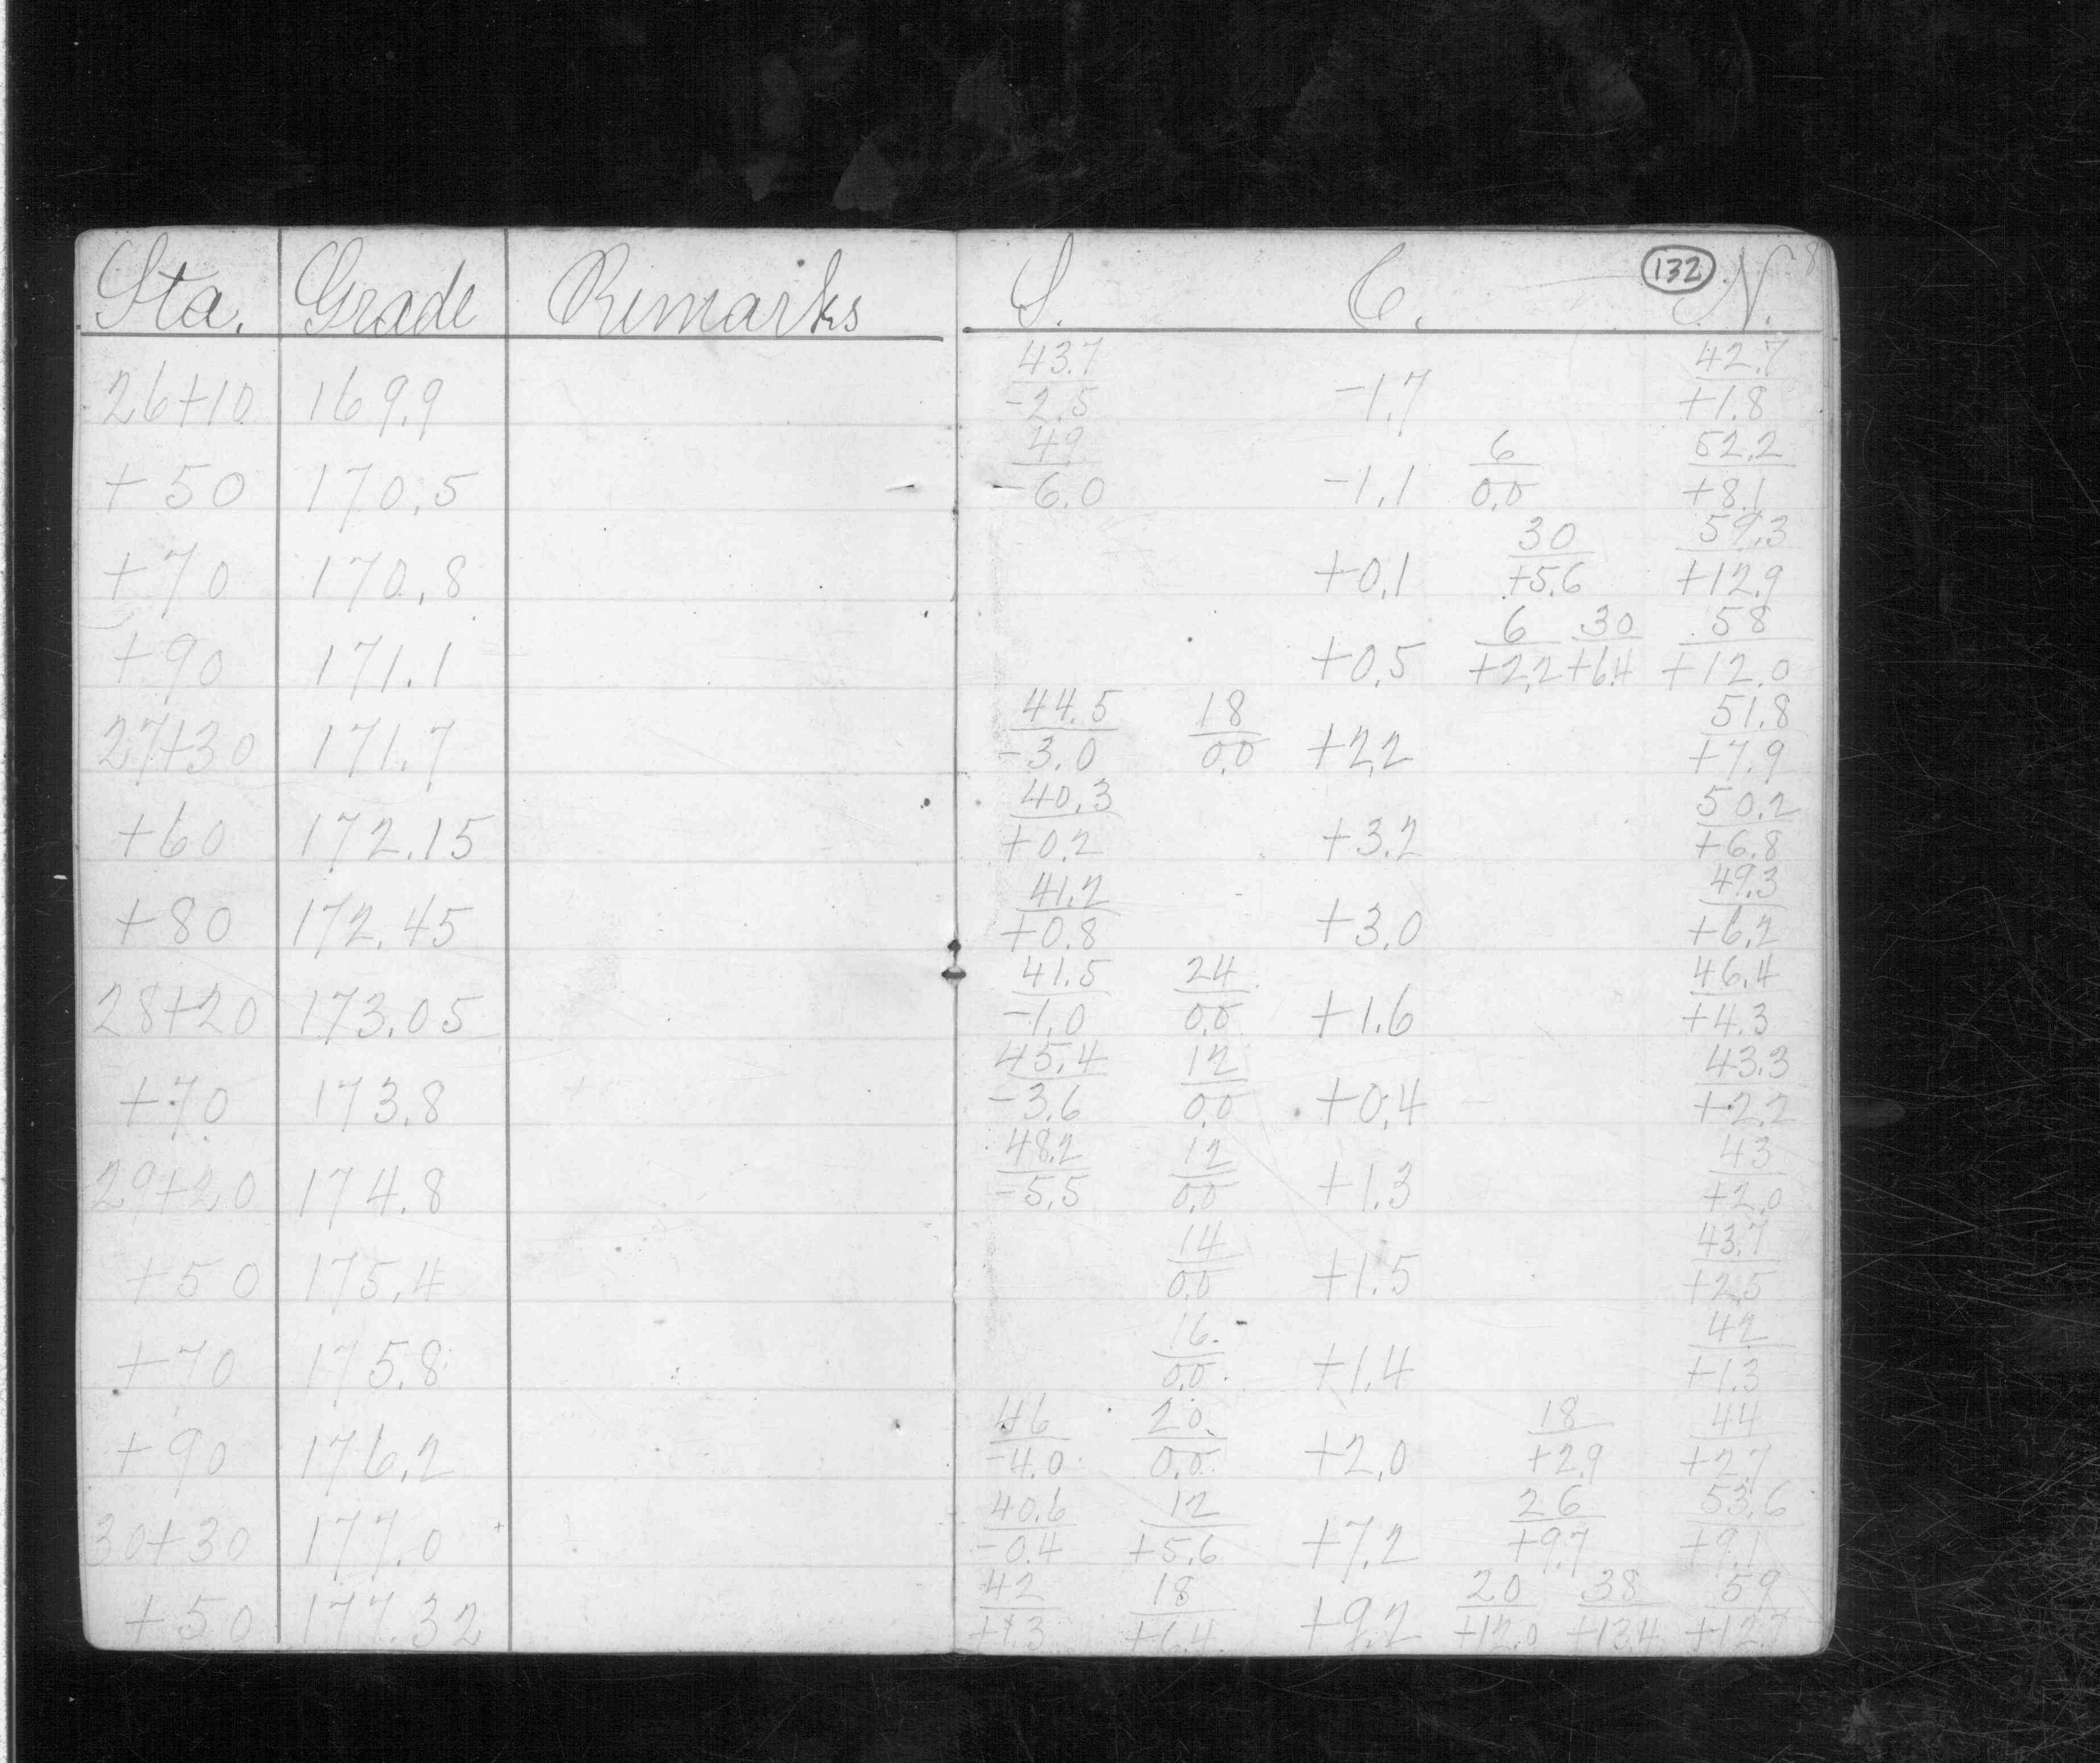 Sta. Grade Remarks S. C. 132 N. 8
43.7 42.7
26+10 169.9 -2.5 -1.7 +1.8
49 6 52.2
+50 170.5 -6.0 -1.1 0.0 +8.1
30 59.3
+70 170.8 +0.1 +5.6 +12.9
6 30 58
+90 171.1 +0.5 +2.2 +6.4 +12.0
44.5 18 51.8
27+30 171.7 -3.0 0.0 +2.2 +7.9
40.3 50.2
+60 172.15 +0.2 +3.2 +6.8
41.2 49.3
+80 172.45 +0.8 +3.0 +6.2
41.5 24 46.4
28+20 173.05 -1.0 0.0 +1.6 +4.3
45.4 12 43.3
+70 173.8 -3.6 0.0 +0.4 +2.2
48.2 12 43
29+20 174.8 -5.5 0.0 +1.3 +2.0
14 43.7
+50 175.4 0.0 +1.5 +2.5
16 42
+70 175.8 0.0 +1.4 +1.3
46 20 18 44
+90 176.2 -4.0 0.0 +2.0 +2.9 +2.7
40.6 12 26 53.6
30+30 177.0 -0.4 +5.6 +7.2 +9.7 +9.1
42 18 20 38 59
+50 177.32 +1.3 +6.4 +9.2 +12.0 +13.4 +12.7